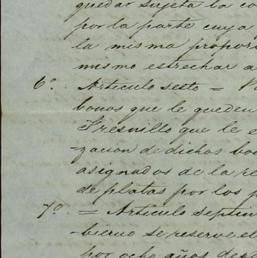 quedar sujeta la co
por la parte cuya
la misma propor
mismo estrechar a
6º. Articulo sesto =
bonos que le queden
Fresnillo que le e
-zacion de dichos bo
asignados de la re
de platas por los p
7º. = Articulo septim
-bierno se reserve el
por ocho años desd